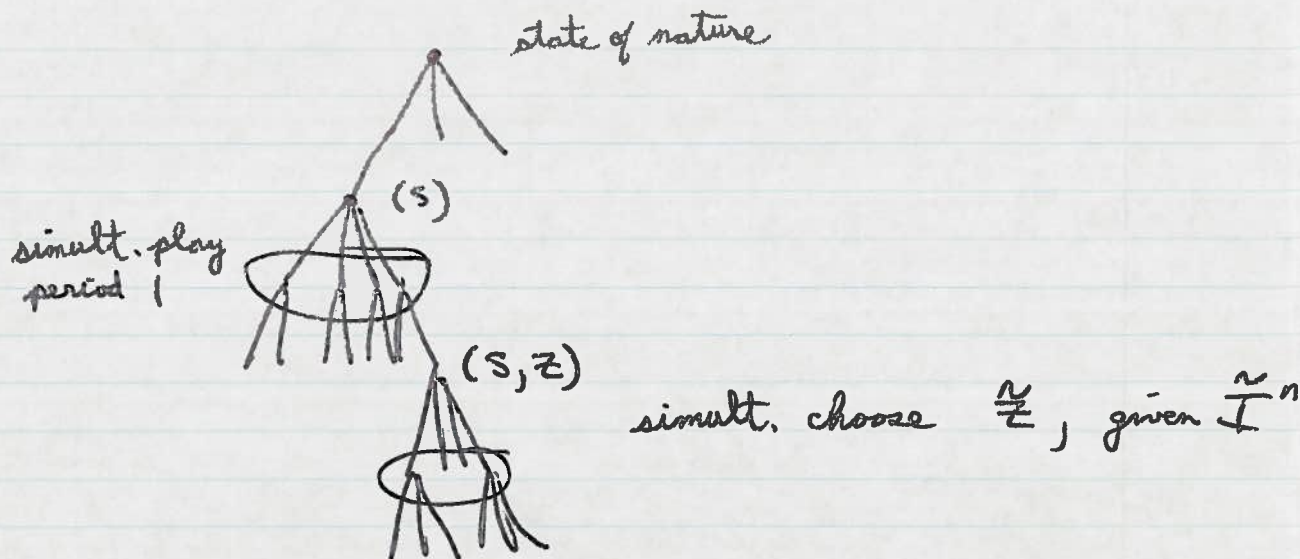 state of nature
(s)
simult. play
period 1
(s, z)
simult. choose z̃, given Ĩⁿ